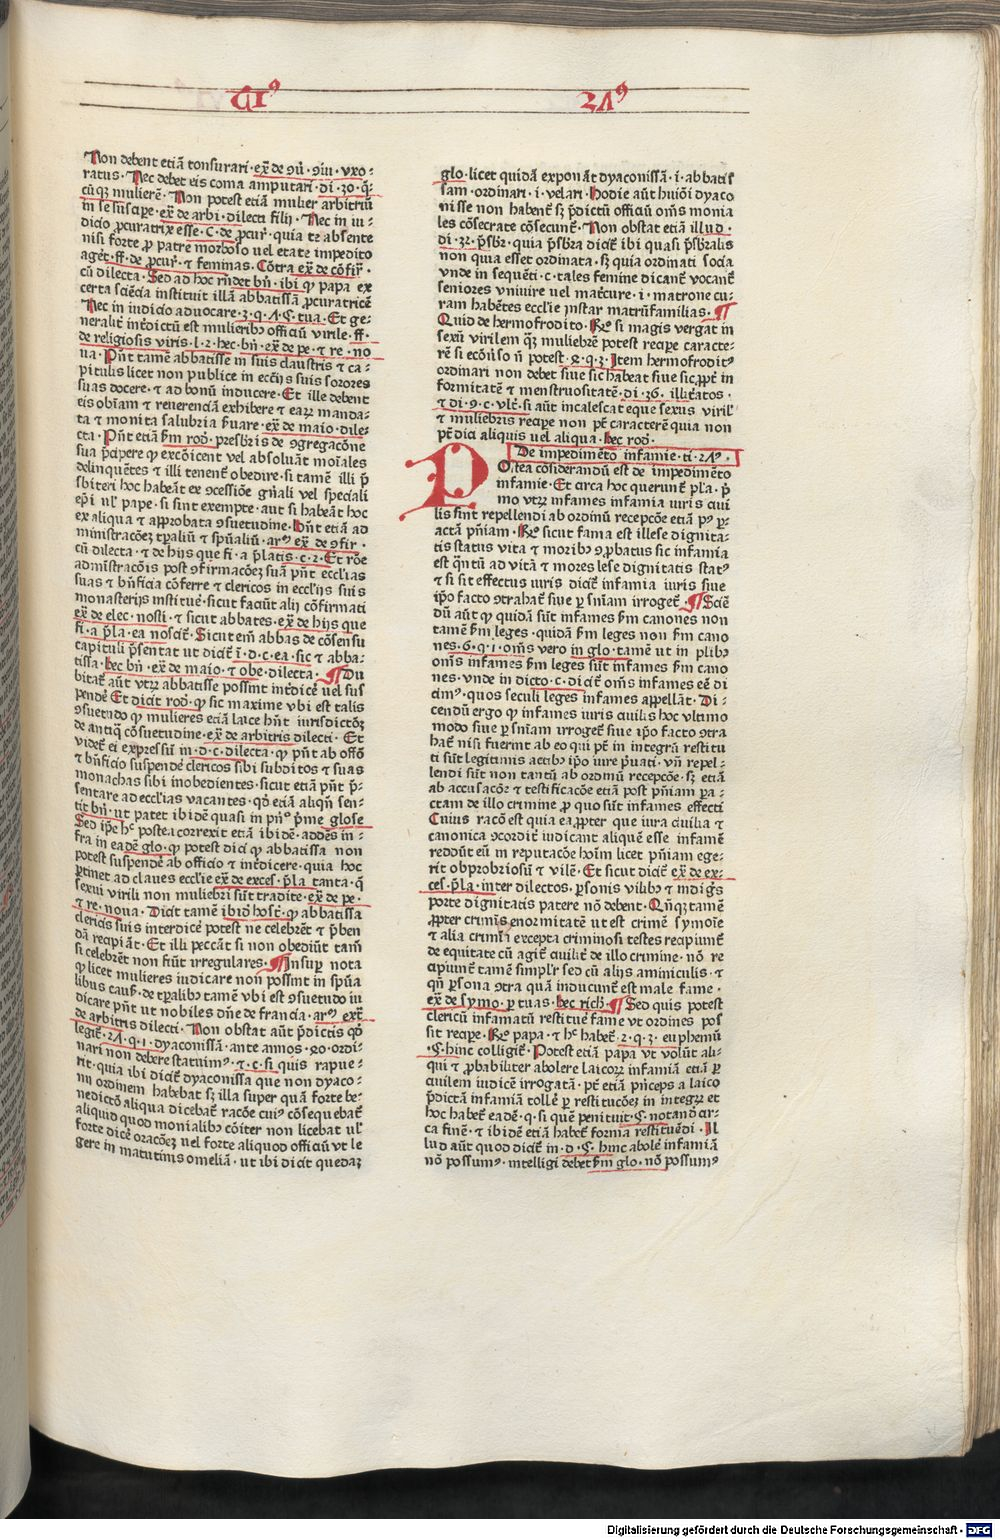 VI⁹ 24⁹
Non debent etiā tonsurari · ex̄ de ꝯũ · ꝯiu · vxo⸗
ratus · Nec debet eis coma amputari · di · 30 · q̄⸗
cūqꝫ mulierē · Non potest etiā mulier arbitriū
in se suscipe · ex̄ de arbi · dilecti filij · Nec in iu⸗
dicio ꝓcuratrix esse · C · de ꝓcur̄ · quia te absente
nisi forte ꝓ patre morboso uel etate impedito
aget · ff · de ꝓcur̄ · ⁊ feminas · Cōtra ex̄ de cōfir̄ ·
cū dilecta · Sed ad hoc rn̄det bn̄ · ibi ꝙ papa ex
certa sciētia instituit illā abbatissā ꝓcuratricē
Nec in iudicio aduocare · 3 · q · 7 · C · tua · Et ge⸗
neralit̄ int̄dictū est mulieribꝫ officiū virile · ff ·
de religiosis viris · l · 2 · hec · bn̄ · ex̄ de pe · ⁊ re · no
ua · Pn̄t tamē abbatisse in suis claustris ⁊ ca⸗
pitulis licet non publice in ecc̄ijs suis sorores
suas docere · ⁊ ad bonū inducere · Et ille debent
eis obiam ⁊ reuerenciā exhibere ⁊ earꝝ manda⸗
ta ⁊ monita salubria ẜuare · ex̄ de maio · dile⸗
cta · Pn̄t etiā ẜm rod̄ · presbr̄is de ꝯgregacōne
sua p̄cipere ꝙ excōicent vel absoluāt moīales
delinquētes ⁊ illi tenent̄ obedire · si tamē illi p̄
sbiteri hoc habeāt ex ꝯcessiōe gn̄ali vel speciali
ep̄i ul̄ pape · si sint exempte · aut si habeāt hoc
ex aliqua ⁊ approbata ꝯsuetudine · Hn̄t etiā ad
ministracōeꝫ tꝑaliū ⁊ spūaliū · arᵒ ex̄ de ꝯfir ·
cū dilecta · ⁊ de hijs que fi · a p̄latis · c · 2 · Et rōe
adm̄istracōis post ꝯfirmacōeꝫ suā pn̄t eccl̄ias
suas ⁊ bn̄ficia cōferre ⁊ clericos in eccl̄ijs suis
monasterijs instituē · sicut faciūt alij cōfirmati
ex̄ de elec · nosti · ⁊ sicut abbates · ex̄ de hijs que
fi · a p̄la · ea noscit̄ · Sicut em̄ abbas de cōsensu
capituli p̄sentat ut dicit̄ ī · d · c · ea · sic ⁊ abba⸗
tissa · hec bn̄ · ex̄ de maio · ⁊ obe · dilecta · ¶ Du
bitat̄ aūt vtrꝫ abbatisse possint int̄dicē vel sus
pendē Et dicit rod̄ · ꝙ sic maxime vbi est talis
ꝯsuetudo ꝙ mulieres etiā laice hn̄t iurisdictōꝫ
de antiq̄ cōsuetudine · ex̄ de arbitris dilecti · Et
videt̄ ei expressū in · d · c · dilecta · ꝙ pn̄t ab offō
⁊ bn̄ficio suspendē clericos sibi subditos ⁊ suas
monachas sibi inobedientes · sicut etiā pn̄t p̄⸗
sentare ad eccl̄ias vacantes · qō etiā aliqn̄ sen⸗
tit bn̄ · ut patet ibidē quasi in pn̄° p̄me glose
Sed ip̄e hᶜ postea correxit etiā ibidē · addēs in⸗
fra in eadē glo · ꝙ potest dici ꝙ abbatissa non
potest suspendē ab officio ⁊ int̄dicere · quia hoc
ꝑtinet ad claues ecclīe ex̄ de exces · p̄la tanta · q̄
sexui virili non muliebri sūt tradite · ex̄ de pe ·
⁊ re · noua · Dicit tamē ibid̄ host̄ · ꝙ abbatissa
clericis suis interdicē potest ne celebrēt ⁊ p̄ben
dā recipiāt · Et illi peccāt si non obediūt tam̄
si celebrēt non fiūt irregulares · ¶ Insuꝑ nota
ꝙ licet mulieres iudicare non possint in spūa
libus cauẜ · de tꝑalibꝫ tamē vbi est ꝯsuetudo iu
dicare pn̄t ut nobiles dn̄e de francia · arᵒ ex̄
de arbitris dilecti · Non obstat aūt p̄dictis qō
legit̄ · 27 · q · 1 · dyaconissā · ante annos · 40 · ordi⸗
nari non debere statuim⁹ · ⁊ · c · si quis rapue⸗
rit · quia ibi dicit̄ dyaconissa que non dyaco⸗
ni ordinem habebat sꝫ illa super quā forte be⸗
nedictō aliqua dicebat̄ racōe cui⁹ cōsequebat̄
aliquid quod monialibꝫ cōiter non licebat ul̄
forte dicē oracōeꝫ uel forte aliquod officiū vt le
gere in matutinis omeliā · ut ibi dicit quedaꝫ
glo · licet quidā exponāt dyaconissā · i · abbatis
sam · ordinari · i · velari · Hodie aūt huiōi dyaco
nisse non habent̄ sꝫ p̄dictū officiū om̄s monia
les cōsecrate cōsecunt̄ · Non obstat etiā illud ·
di · 32 · p̄sbr̄ · quia p̄sbr̄a dicit̄ ibi quasi p̄sbr̄alis
non quia esset ordinata · sꝫ quia ordinati socia
vnde in sequēti · c · tales femine dicant̄ vocant̄
seniores vniuire uel mat̄cure · i · matrone cu⸗
ram habētes ecclīe instar matrūfamilias · ¶
Quid de hermofrodito · Rᵒ si magis vergat in
sexū virilem qꝫ muliebrē potest recipe caracte⸗
rē si ecōuſo n̄ potest · 4 · q · 3 · Item hermofrodit⁹
ordinari non debet siue sic habeat siue sic · ꝓpt̄ in
formitatē ⁊ menstruositatē · di · 36 · illitt̄atos ·
⁊ di · 9 · c · vlt̄ · si aūt incalescat eque sexus viril̄
⁊ muliebris recipe non pt̄ caracterē quia non
pt̄ dici aliquis uel aliqua · hec rod̄ ·
De impedimēto infamie · ti · 24ᵘˢ ·
POstea cōsiderandū est de impedimēto
infamie · Et circa hoc querunt̄ pl̄a · p̄
mo vtrꝫ infames infamia iuris ciui
lis sint repellendi ab ordinū recepcōe etiā pᵒ ꝑ⸗
actā pn̄iam · Rᵒ sicut fama est illese dignita⸗
tis status vita ⁊ moribꝫ ꝯprobatus sic infamia
est qn̄tū ad vitā ⁊ mores lese dignitatis stat⁹
⁊ si sit effectus iuris dicit̄ infamia iuris siue
ip̄o facto ꝯtrahat̄ siue ꝑ sn̄iam irroget̄ · ¶ Sciē
dū aūt ꝙ quidā sūt infames ẜm canones non
tamē ẜm leges · quidā ẜm leges non ẜm cano
nes · 6 · q · 1 · om̄s vero in glo · tamē ut in plibꝫ
om̄s infames ẜm leges sūt infames ẜm cano
nes · vnde in dicto · c · dicit̄ om̄s infames eē di
cim⁹ · quos seculi leges infames appellāt · Di⸗
cendū ergo ꝙ infames iuris ciuilis hoc vltimo
modo siue ꝑ sn̄iam irroget̄ siue ip̄o facto ꝯtra
hat̄ nisi fuerint ab eo qui pt̄ in integrū restitu
ti sūt legitimis actibꝫ ip̄o iure p̄uati · vn̄ repel⸗
lendi sūt non tantū ab ordinū recepcōe · sꝫ etiā
ab accusacōe ⁊ testificacōe etiā post pn̄iam ꝑa⸗
ctam de illo crimine ꝓ quo sūt infames effecti
Cuius racō est quia ea ꝓpter que iura ciuilia ⁊
canonica ꝯcordit̄ iudicant aliquē esse infamē
reddūt eū in reputacōe hoīm licet pn̄iam ege⸗
rit obprobriosū ⁊ vilē · Et sicut dicit̄ ex̄ de ex⸗
ces · p̄la · inter dilectos · ꝑsonis vilibꝫ ⁊ indignis
porte dignitatis patere nō debent · Qn̄qꝫ tamē
ꝓpter crimīs enormitatē ut est crimē symoīe
⁊ alia crimīa excepta criminosi testes recipiunt̄
de equitate cū agit̄ ciuilit̄ de illo crimine · nō re
cipiunt̄ tamē simpl̄r sed cū alijs aminiculis · ⁊
qn̄ ꝑsona ꝯtra quā inducunt̄ est male fame ·
ex̄ de symo · ꝑ tuas · hec rich̄ · ¶ Sed quis potest
clericū infamatū restituē fame vt ordines pos
sit recipe · Rᵒ papa · ⁊ hᶜ habet̄ · 2 · q · 3 · euphemū
· C · hinc colligit̄ · Potest etiā papa vt volūt ali⸗
qui ⁊ ꝓbabiliter abolere laicorꝫ infamiā etiā ꝑ
ciuilem iudicē irrogatā · pt̄ etiā pn̄ceps a laico
p̄dictā infamiā tollē ꝑ restitucōeꝫ in integꝝ et
hoc habet̄ eadē · q · si quē penituit · C · notand̄ ar⸗
ca finē · ⁊ ibidē etiā habet̄ forma restituēdi · Il
lud aūt quod dicit̄ in · d · C · hinc abolē infamiā
nō possum⁹ · intelligi debet ẜm glo · nō possum⁹
Digitalisierung gefördert durch die Deutsche Forschungsgemeinschaft - DFG